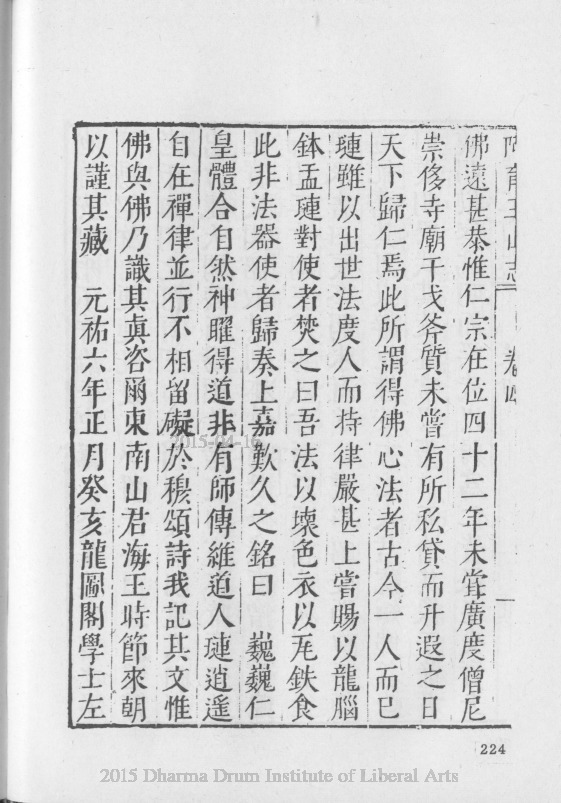 阿育王山志 卷四 一
佛遠甚恭惟仁宗在位四十二年未甞廣度僧尼
崇侈寺廟干戈斧質未嘗有所私貸而升遐之日
天下歸仁焉此所謂得佛心法者古今一人而已
璉雖以出世法度人而持律嚴甚上嘗賜以龍腦
鉢盂璉對使者焚之曰吾法以壞色衣以瓦鉄食
此非法器使者歸奏上嘉歎久之銘曰 巍巍仁
皇體合自然神曜得道非有師傳維道人璉逍遥
自在禪律並行不相留礙於穆頌詩我記其文惟
佛與佛乃識其真咨爾東南山君海王時節來朝
以謹其藏 元祐六年正月癸亥龍圖閣學士左
2015-04-16
224
2015 Dharma Drum Institute of Liberal Arts